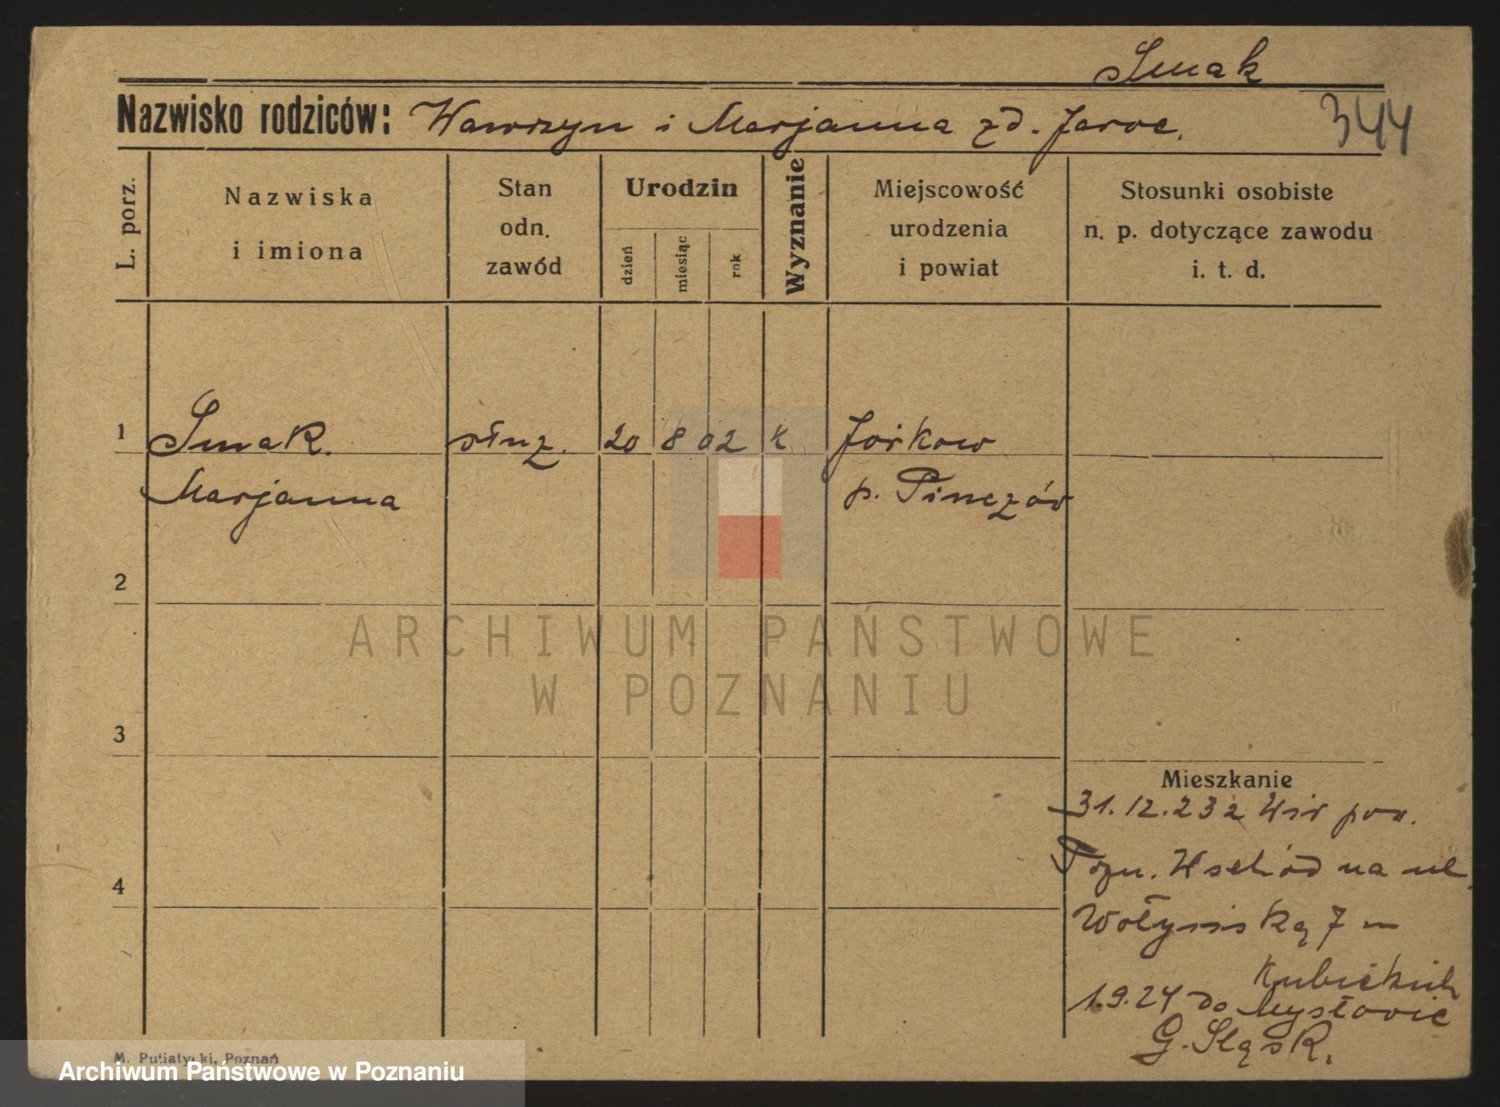 Smak
Nazwisko rodziców: Wawrzyn i Marjanna zd. Jaroc.
344
L. porz.
Nazwiska
i imiona
Stan
odn.
zawód
Urodzin
dzień
miesiąc
rok
Wyznanie
Miejscowość
urodzenia
i powiat
Stosunki osobiste
n. p. dotyczące zawodu
i. t. d.
1 Smak służ. 20 8 02 k
Marjanna p. Pinczów
2
ARCHIWUM PAŃSTWOWE
W POZNANIU
3
Mieszkanie
31.12.23 z
4
Pozn. Wschód na ul.
Wołyńską 7
1.9.24 do Mysłowic
G. Śląsk.
M. Putiatycki, Poznań
Archiwum Państwowe w Poznaniu